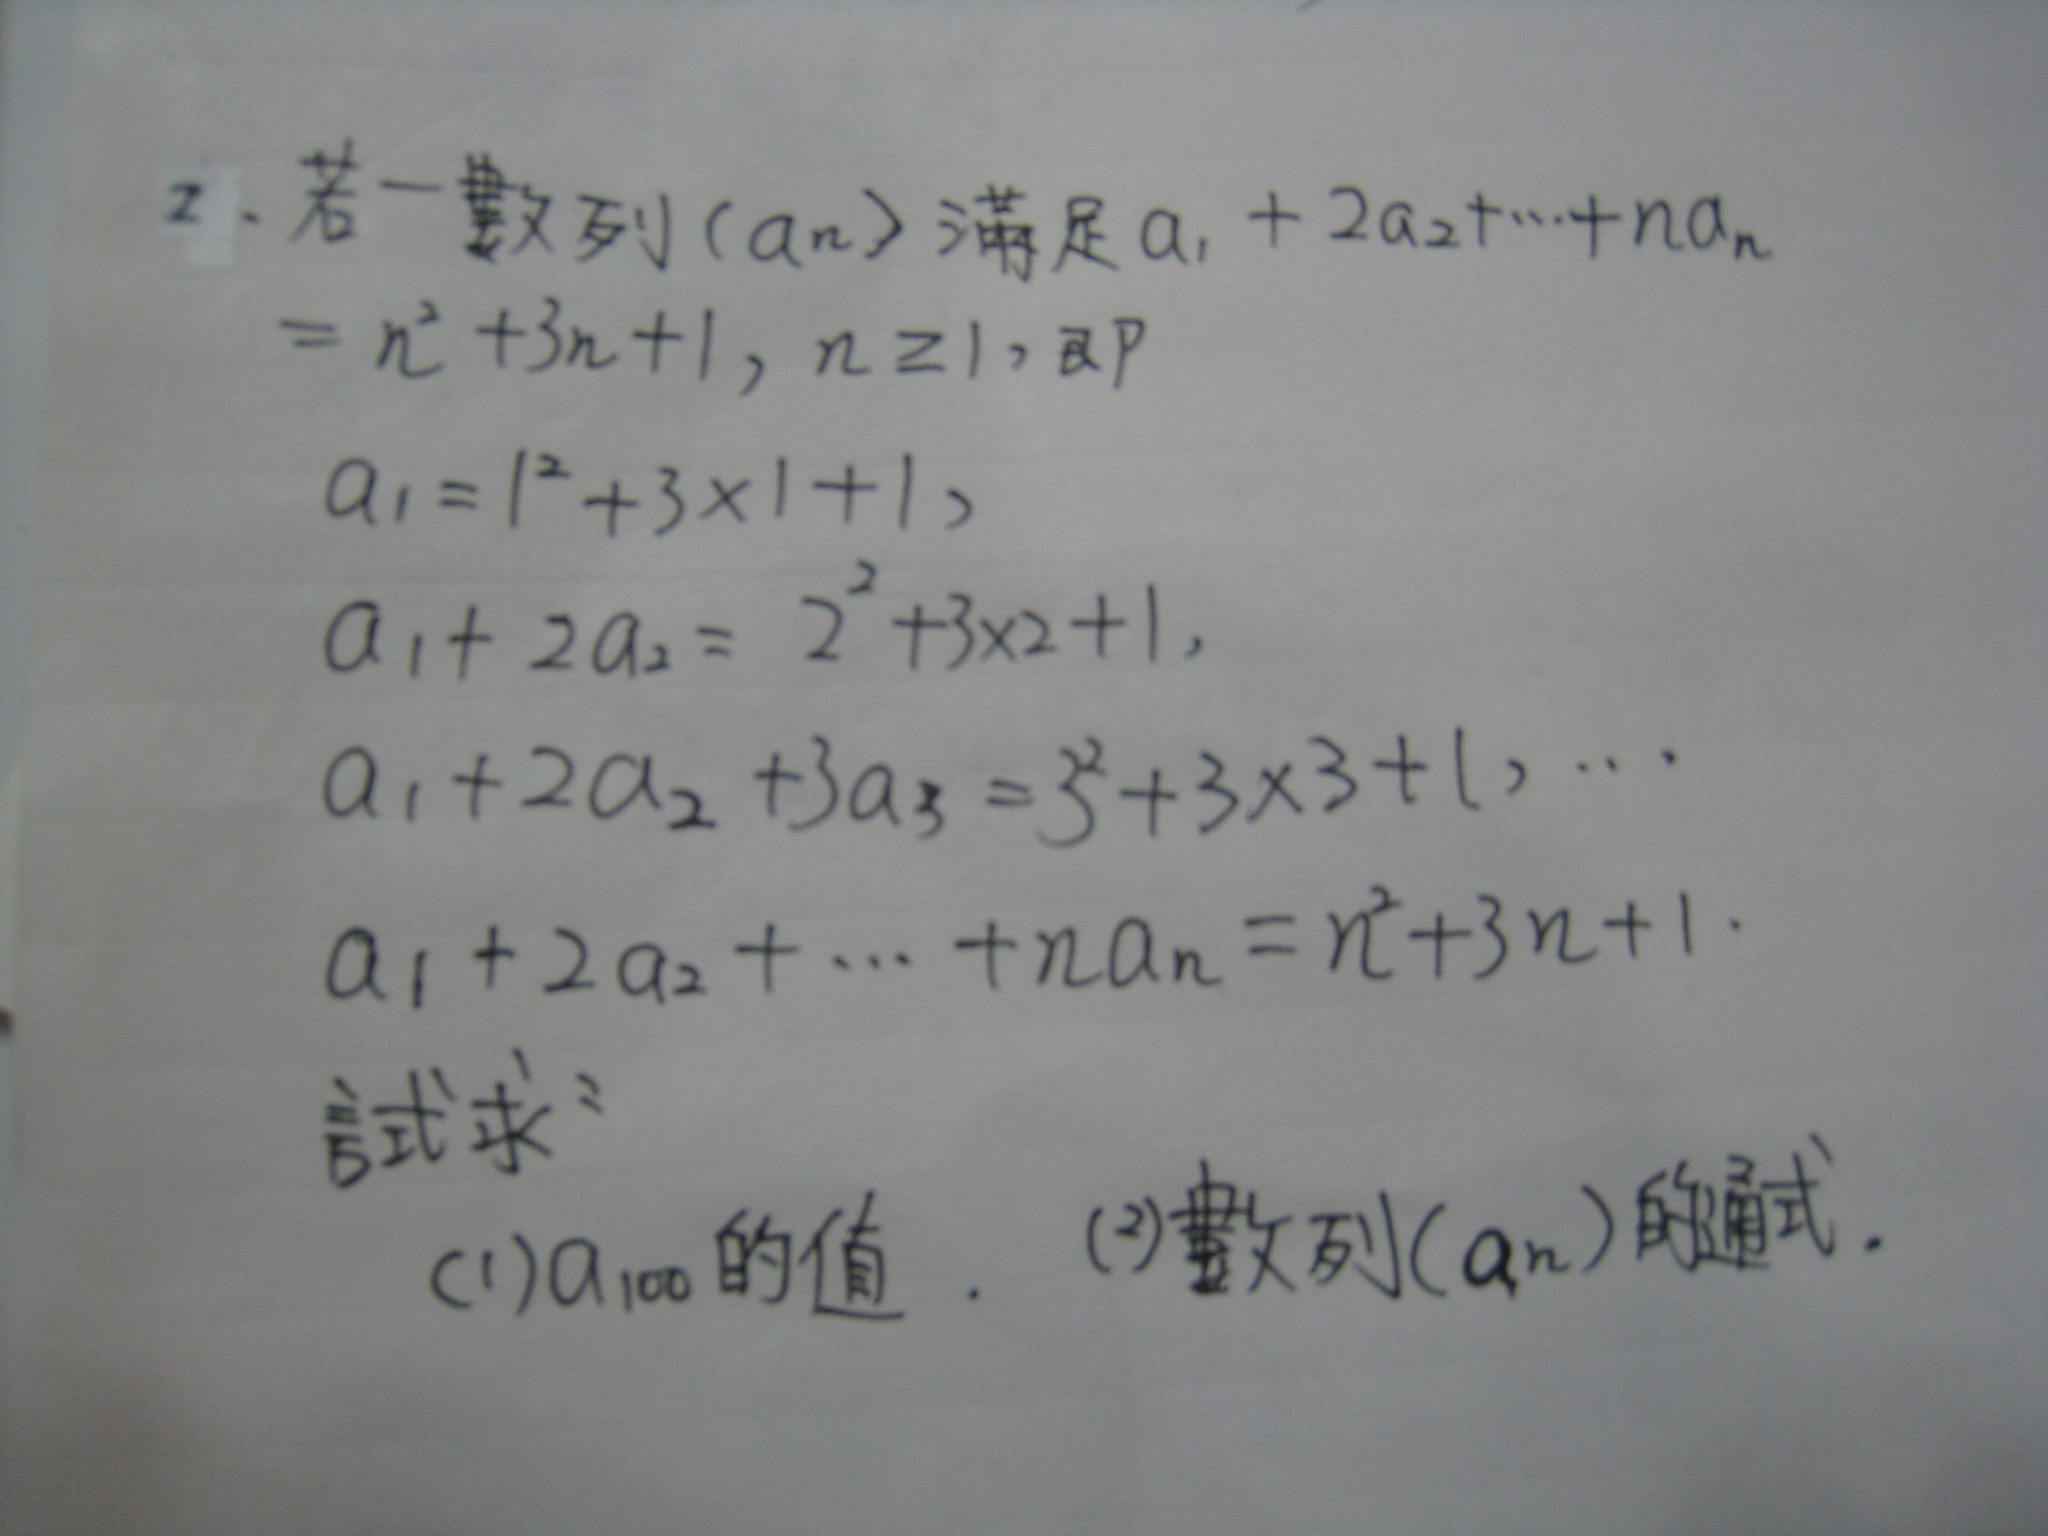 2. 若一數列(an)滿足a₁+2a₂+…+naₙ
= n²+3n+1, n≥1, 即
a₁=1²+3×1+1,
a₁+2a₂= 2²+3×2+1,
a₁+2a₂+3a₃=3²+3×3+1, …
a₁+2a₂+…+naₙ=n²+3n+1.
試求:
(1)a₁₀₀的值. (2)數列(an)的通式.